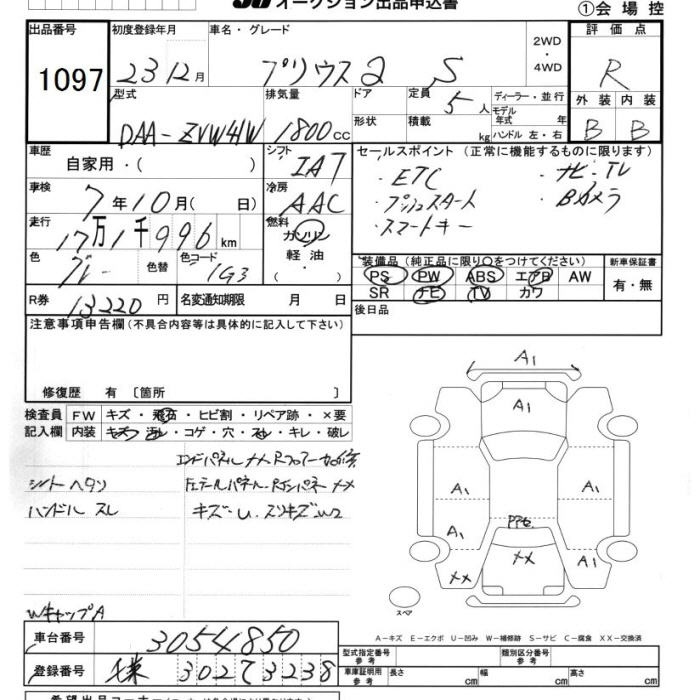 オークション出品申込書
①会場控
出品番号 初度登録年月 車名・グレード 評価点
1097 23 12月 プリウスα S 2WD・4WD R
型式 排気量 ドア 定員 5人 ディーラー・並行 外装 内装
DAA-ZVW41W 1800cc 形状 積載 kg モデル年式 年 ハンドル 左・右 B B
車歴 自家用・( ) シフト IAT セールスポイント (正常に機能するものに限ります)
車検 7年10月( 日) 冷房 AAC ・ETC ・ナビ・TV
・プッシュスタート ・Bカメラ
・スマートキー
走行 17万1千996km 燃料 ガソリン
軽油・( )
色 グレー 色替 色コード 1G3
装備品 (純正品に限り○をつけてください) 新車保証書
PS PW ABS エアB AW 有・無
SR ナビ TV カワ
R券 13220円 名変通知期限 月 日 後日品
注意事項申告欄(不具合内容等は具体的に記入して下さい)
修復歴 有 〔箇所 〕
検査員 FW キズ・飛石・ヒビ割・リペア跡・×要
記入欄 内装 キズ・汚レ・コゲ・穴・スレ・キレ・破レ
エンドパネルXX Rフロアー
シートヘタリ
ハンドルスレ キズ~U
WキャップA
A1
A1
A1 A1
A1 A1
XX XX
スペア
A-キズ E-エクボ U-凹み W-補修跡 S-サビ C-腐食 XX-交換済
車台番号 3054850 型式指定番号 参考 類別区分番号 参考
登録番号 302 3238 車庫証明用 参考 長さ cm 幅 cm 高さ cm